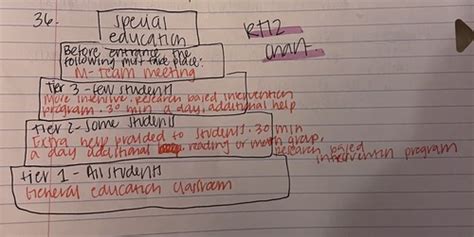 36.
special
education
RTI2
chart.
Before entrance the
following must take place:
M-team meeting
Tier 3 - few students
More intensive, research based intervention
program. 30 min a day, additional help
Tier 2 - some students
Extra help provided to students. 30 min
a day additional reading or math group,
research based
intervention program
Tier 1 - All students
General education classroom